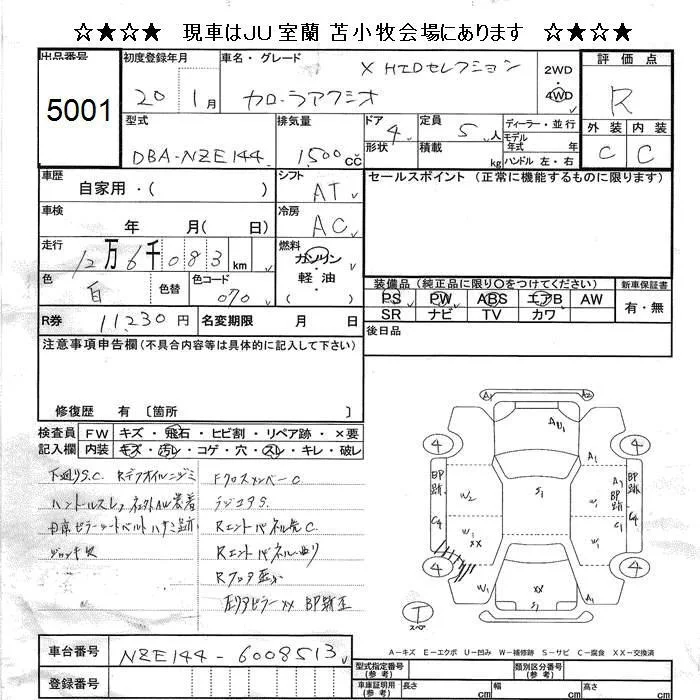 ☆★☆★ 現車はJU室蘭 苫小牧会場にあります ☆★☆★
出品番号 初度登録年月 車名・グレード X HIDセレクション 2WD 4WD 評価点
5001 20 1月 カローラアクシオ R
型式 排気量 ドア 4 定員 5人 ディーラー・並行 外装 内装
DBA-NZE144 1500cc 形状 積載 kg モデル年式 年 ハンドル 左・右 C C
車歴 自家用・( ) シフト AT セールスポイント (正常に機能するものに限ります)
車検 年 月( 日) 冷房 AC
走行 12万6千083km 燃料 ガソリン・軽油
色 白 色替 色コード 070 装備品 (純正品に限り○をつけてください) 新車保証書
PS PW ABS エアB AW 有・無
R券 11,230円 名変期限 月 日 SR ナビ TV カワ
注意事項申告欄(不具合内容等は具体的に記入して下さい) 後日品
修復歴 有 〔箇所 〕
検査員 FW キズ・飛石・ヒビ割・リペア跡・×要
記入欄 内装 キズ・汚レ・コゲ・穴・スレ・キレ・破レ
下廻りS.C. Rデフオイルニジミ FクロスメンバーC
ハンドルスレ 社外AW装着 ラジコアS
Rエンドパネル先C.
Rエンドパネル曲り
Rフロア歪み
A1 A2
AU1 A1
4 4
印跡 W2 S1 A1 印跡 印跡
C4 W1 C4
W XX W1
4 W1 XX W1 4
T スペア
A-キズ E-エクボ U-凹み W-補修跡 S-サビ C-腐食 XX-交換済
車台番号 NZE144-6008513
登録番号
型式指定番号(参考) 類別区分番号(参考)
車庫証明用(参考) 長さ cm 幅 cm 高さ cm